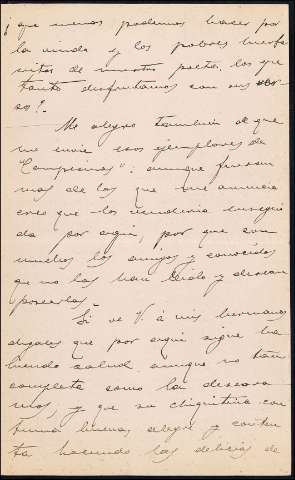 ¿que menos podemos hacer por
la viuda y los pobres huerfa
nitos de nuestro poeta, los que
tanto disfrutamos con sus ver-
sos?.
Me alegro tambien de que
me envie esos ejemplares de
"Campesinas"; aunque fueran
mas de los que me anuncia
creo que los venderia ensegui
da por aqui, por que son
muchos los amigos y conocidos
que no las han leido y desean
poseerlas.
Si ve V. á mis hermanos
digales que por aqui sigue ha
biendo salud, aunque no tan
completa como la deseara
mos, y que su chiquitina con
tinua buena, alegre y conten
ta haciendo las delicias de